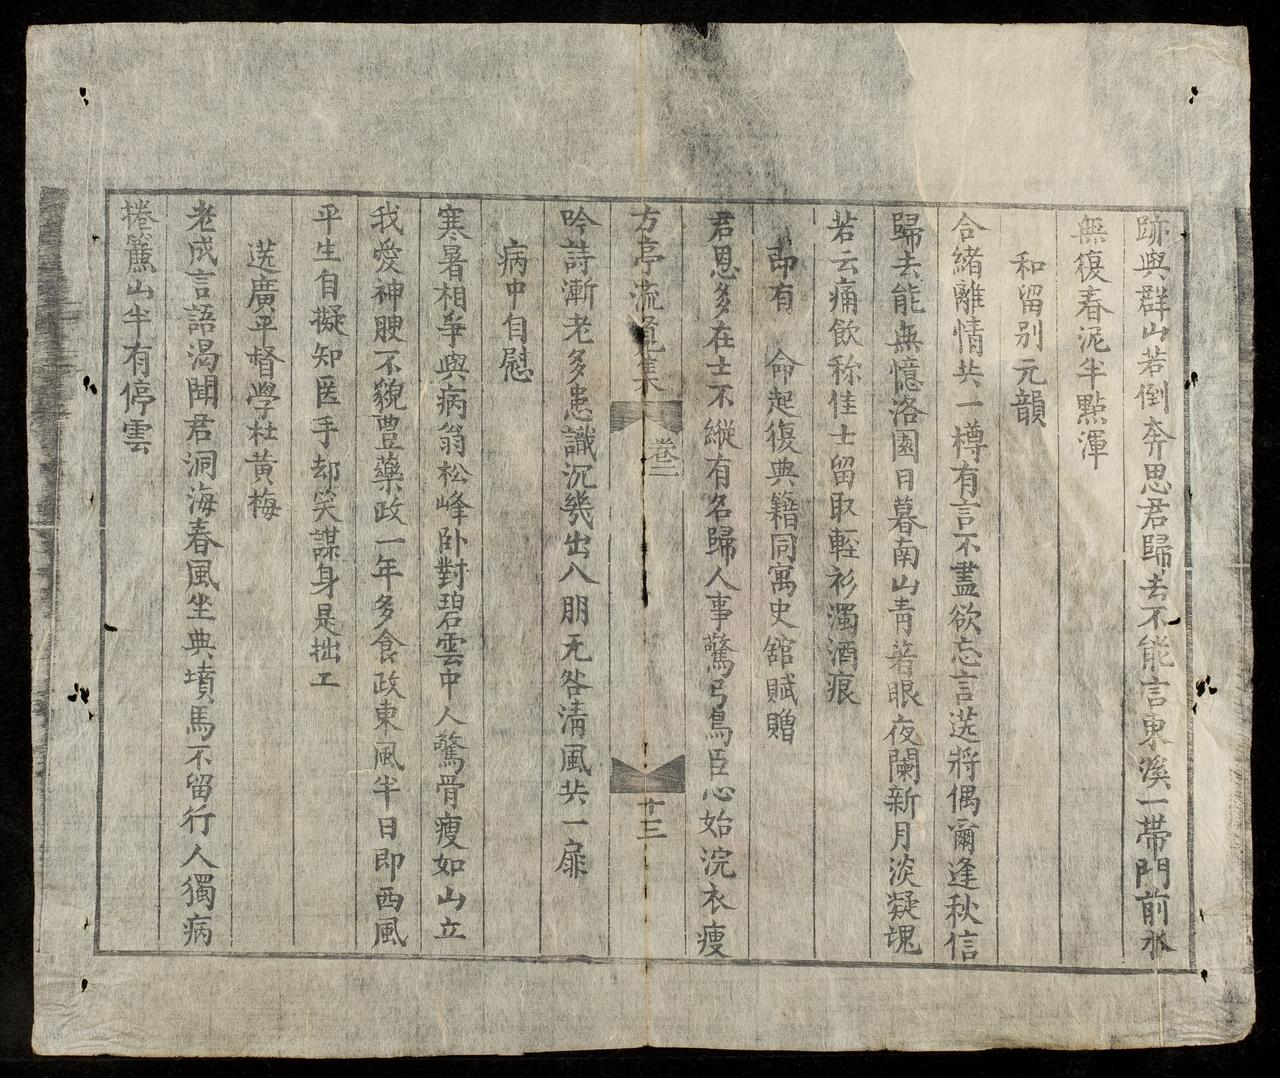 跡與群山若倒奔思君歸去不能言東溪一帶門前水
無復春泥半點渾
和留別元韻
合緒離情共一樽有言不盡欲忘言送將偶爾逢秋信
歸去能無憶洛園日暮南山靑著眼夜闌新月淡凝魂
若云痛飲称佳士留取輕衫濁酒痕
卽有 命起復典籍同寓史舘賦贈
君恩多在士不縱有名歸人事驚弓鳥臣心始浣衣痩
方亭流覓集 卷二 十三
吟詩漸老多患識沉幾出入朋无咎淸風共一扉
病中自慰
寒暑相爭與病翁松峰卧對碧雲中人驚骨瘦如山立
我愛神腴不貌豊藥政一年多食政東風半日即西風
平生自擬知医手却笑謀身是拙工
送廣平督學杜黃梅
老成言語渴聞君洞海春風坐典墳馬不留行人獨病
捲簾山半有停雲